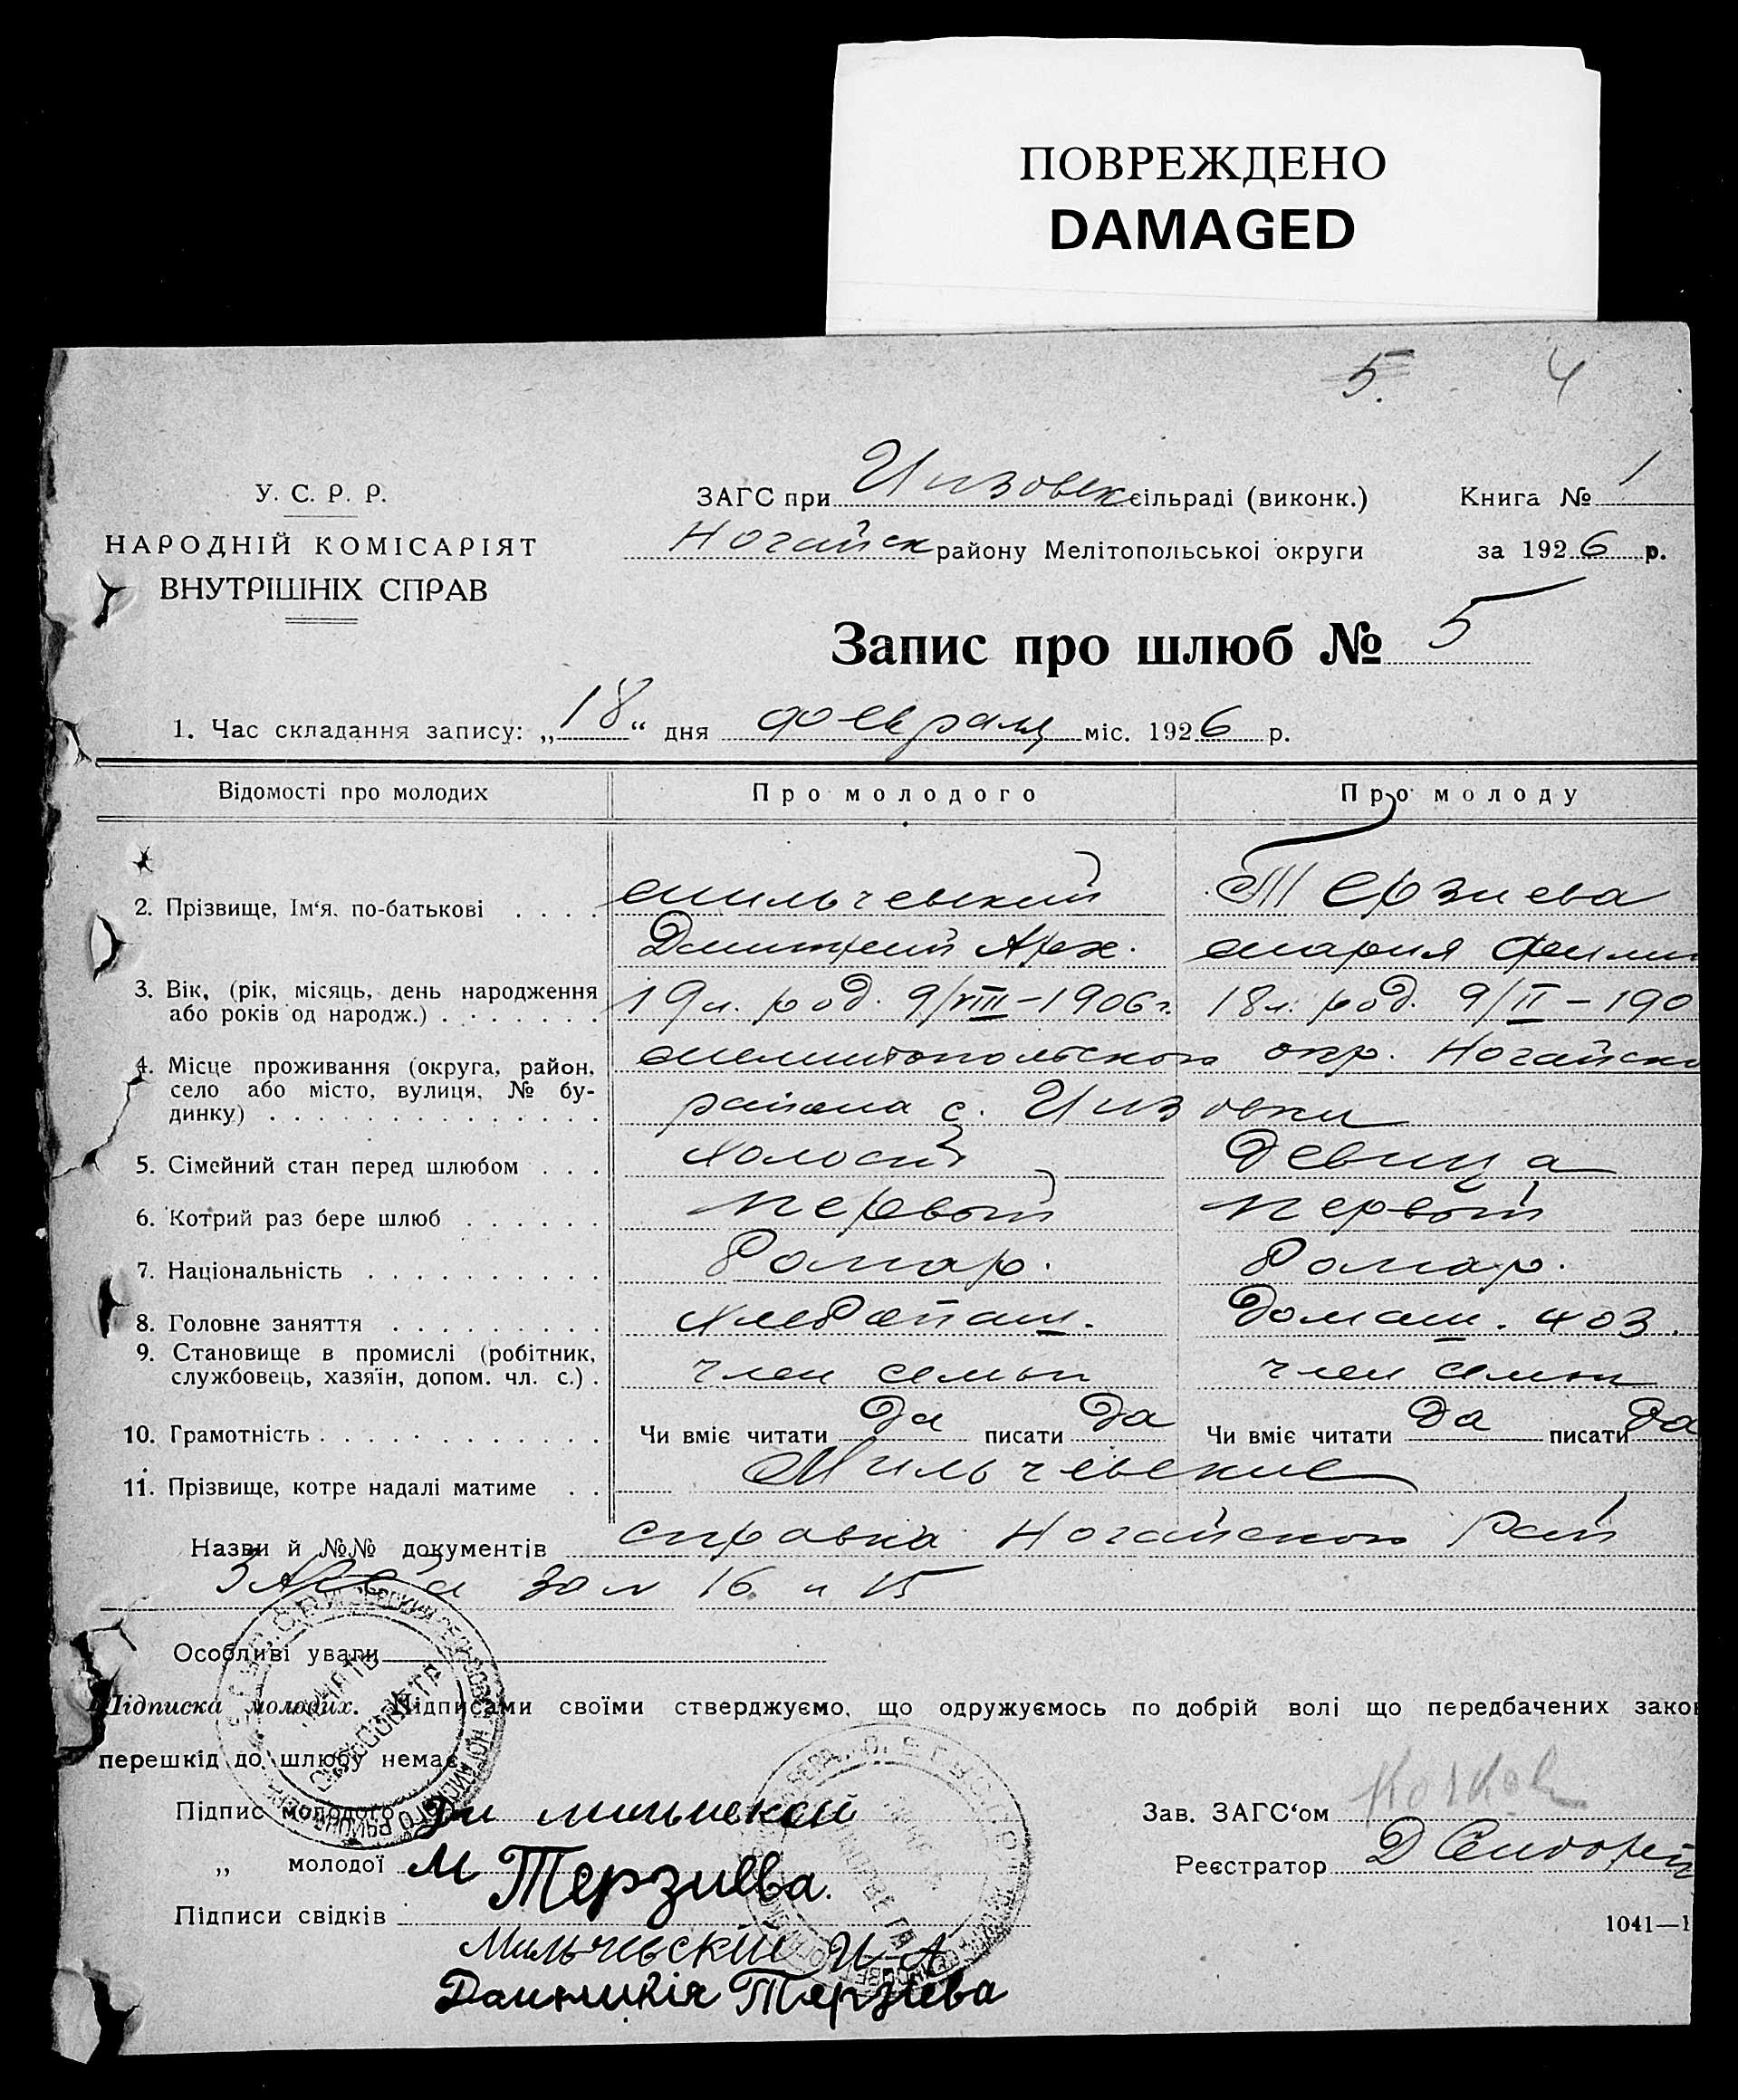 ПОВРЕЖДЕНО
DAMAGED
5. 4
У. С. Р. Р.
НАРОДНІЙ КОМІСАРІЯТ
ВНУТРІШНІХ СПРАВ
ЗАГС при Инзовск сільраді (виконк.) Книга № 1
Ногайск району Мелітопольської округи за 1926 р.
Запис про шлюб № 5
1. Час складання запису: „18“ дня февраля міс. 1926 р.
Відомості про молодих Про молодого Про молоду
2. Прізвище, Ім‘я, по-батькові . . . . Мильчевский Терзиева
Дмитрий Арх. Мария Фили
3. Вік, (рік, місяць, день народження
або років од народж.) . . . . . . . 19 л. род. 9/VIII – 1906 г. 18 л. род. 9/II – 190
4. Місце проживання (округа, район,
село або місто, вулиця, № бу-
динку) . . . . . . . . . . . . . . Мелитопольского окр. Ногайско
района с. Инзовки
5. Сімейний стан перед шлюбом . . . Холостй Девица
6. Котрий раз бере шлюб . . . . . . первый первый
7. Національність . . . . . . . . . . Болгар. Болгар.
8. Головне заняття . . . . . . . . . Хлебопаш. Домаш. хоз.
9. Становище в промислі (робітник,
службовець, хазяїн, допом. чл. с.) . член семьи член семьи
10. Грамотність . . . . . . . . . . . . Чи вміє читати да писати да Чи вміє читати да писати да
11. Прізвище, котре надалі матиме . . Мильчевские
Назви й №№ документів справка Ногайского Рай
ЗАГС'а за № 16 и 15
Особливі уваги
Підписка молодих. Підписами своїми стверджуємо, що одружуємось по добрій волі що передбачених закон
перешкід до шлюбу немає.
Підпис молодого
Зав. ЗАГС‘ом
„ молодої М Терзиева.
Реєстратор
Підписи свідків
1041—1
Мильчевский И А
Терзиева